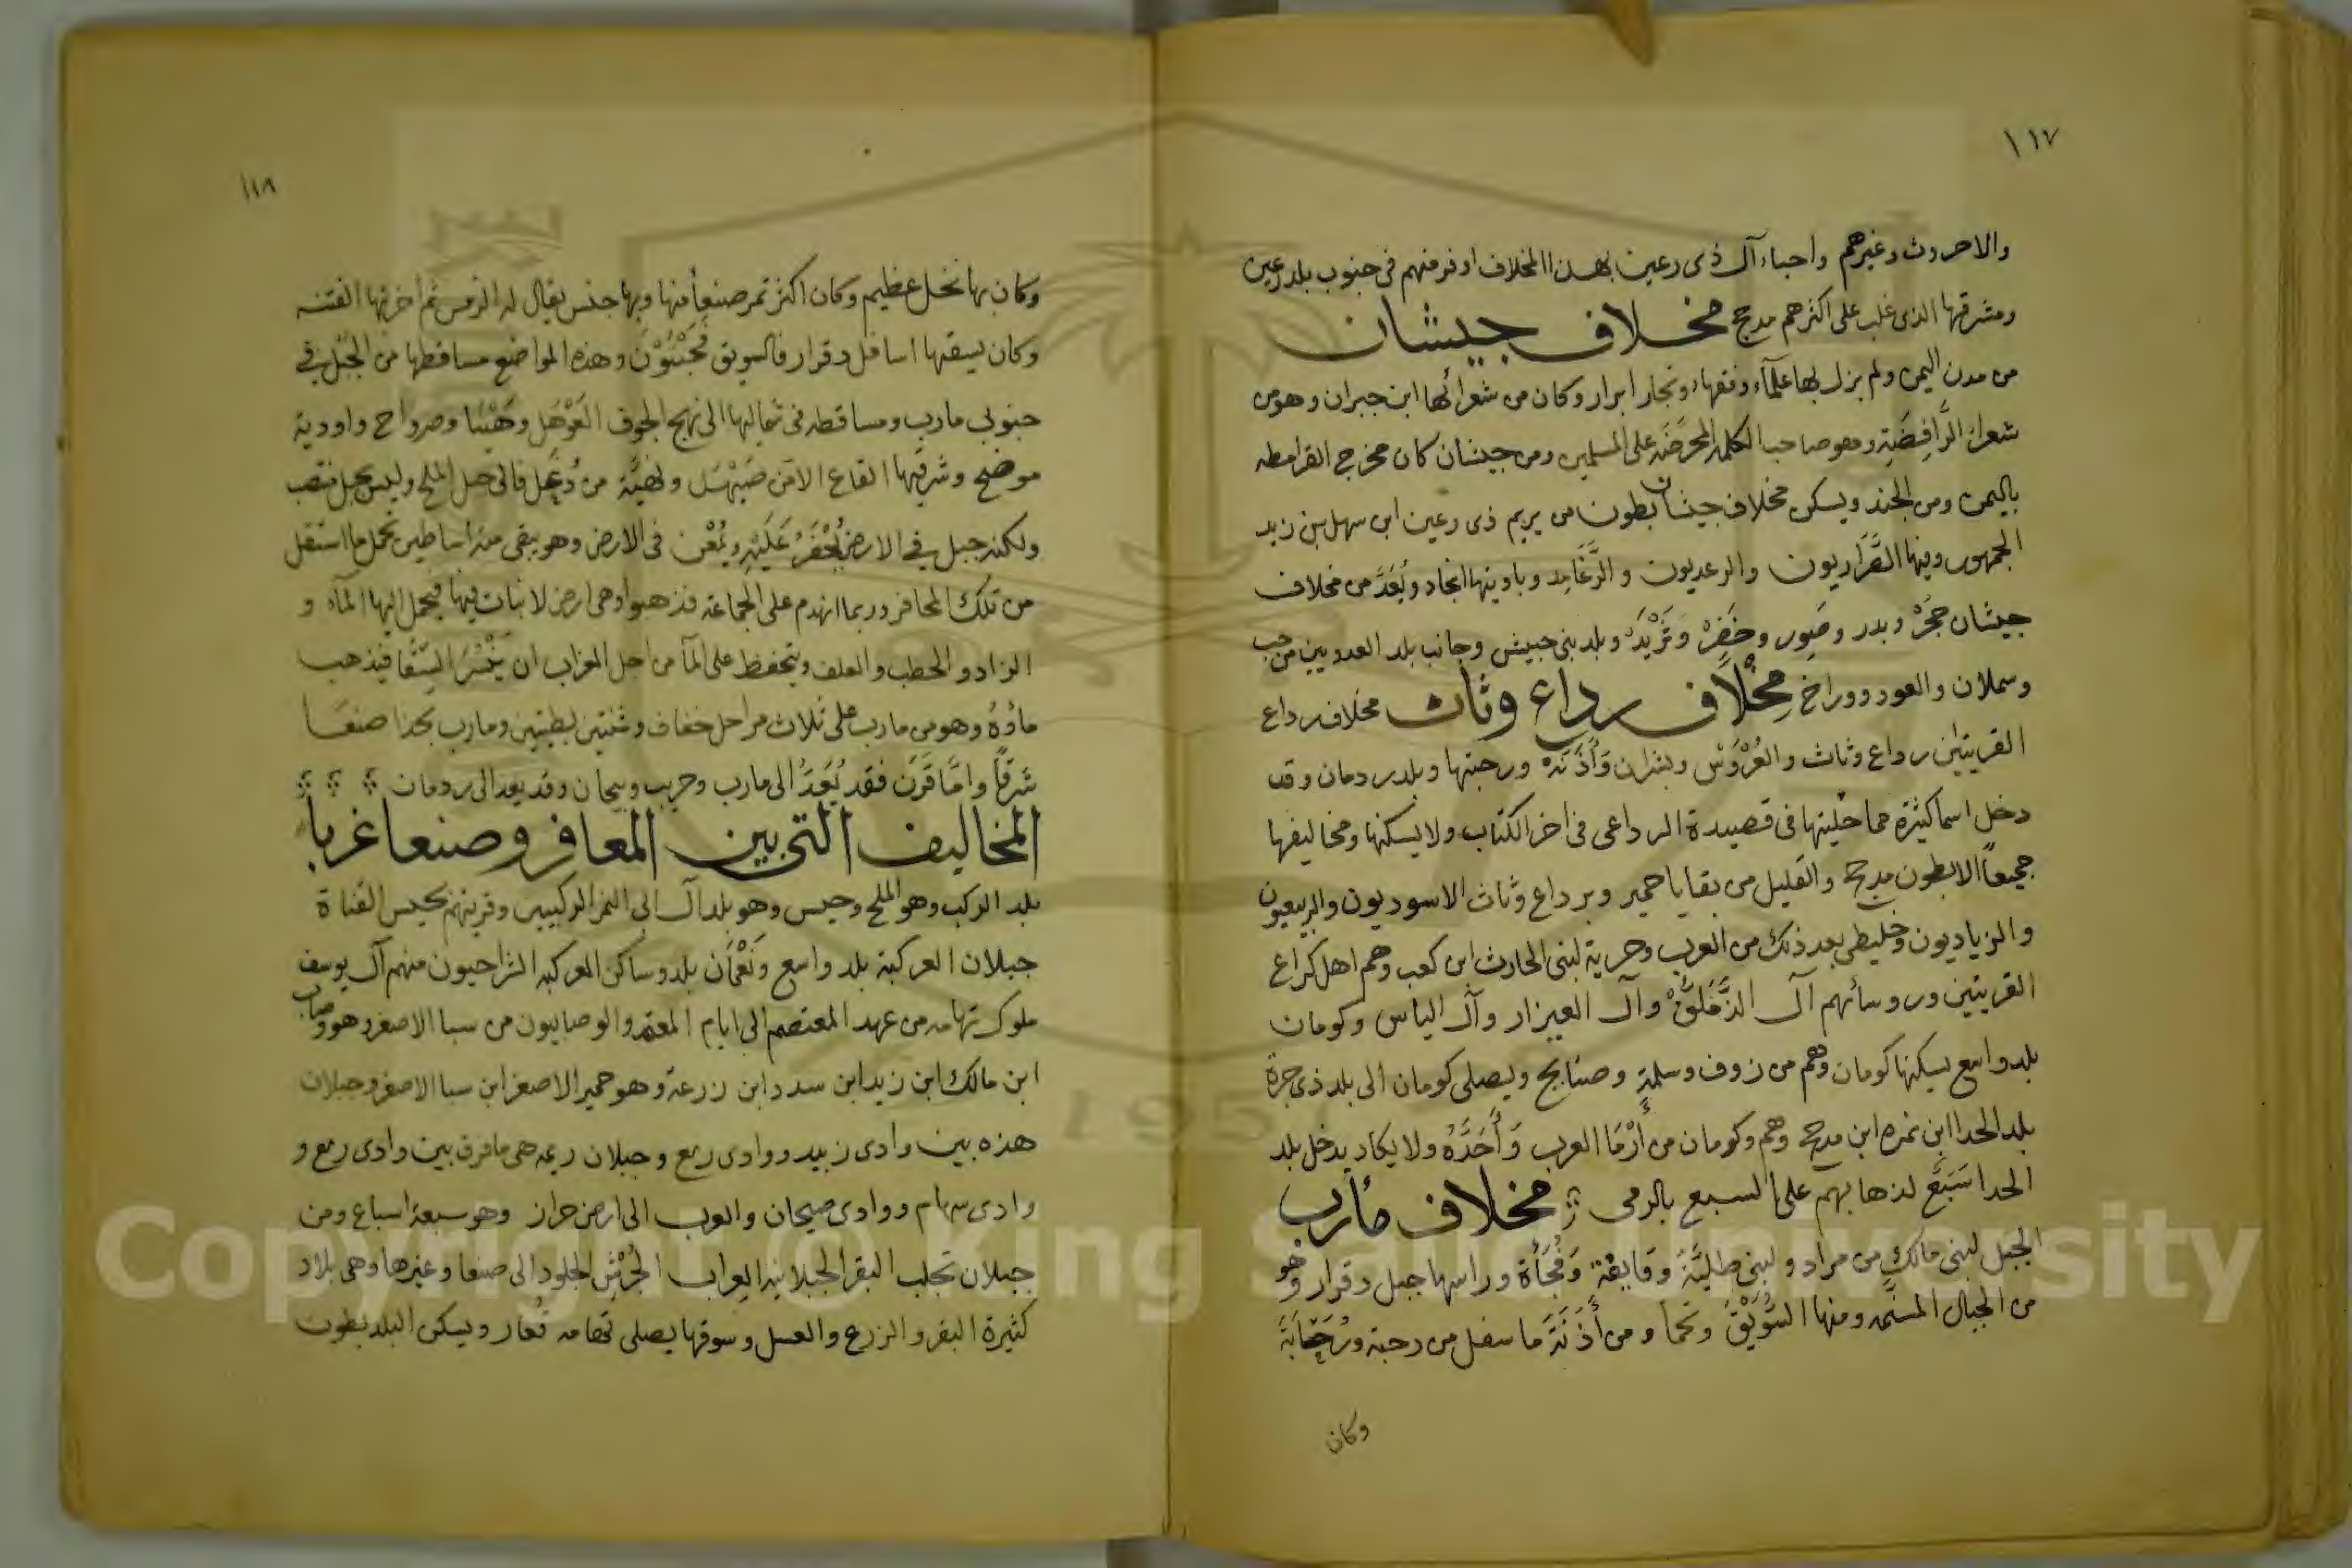 ١١٧
والاحروث وغيرهم واحباء آل ذى رعين بهذا المخلاف اوفر منهم فى جنوب بلد رعين
ومشرقها الذى غلب على اكثرهم مدحج مخلاف جيشان
من مدن اليمن ولم يزل بها علمآء وفقهاء وتجار ابرار وكان من شعرائها ابن جبران وهو من
شعراء الرَّافِضَةِ وهو صاحب الكلمة المحرضة على المسلمين ومن جيشان كان مخرج القرامطه
باليمن ومن الجند ويسكن مخلاف جيشان بطون من يريم ذى رعين ابن سهل بن زيد
الجمهور وفيها الصَّرَاريون والرعديون والرَّغَامِد وباديتها انجاد ويُعَدَّ من مخلاف
جيشان حَجَرْ وبدر وصَوِر وحَضَرْ وَثَرْيَدْ وبلد بنى حبيش وجانب بلد العدويين من حب
وسملان والعود ووراخ مِخْلَاف رداع وثاث مخلاف رداع
القريتين رداع وثاث والعُرْوَشْ وبشران وَأَذَنَهْ ورحبتها وبلد ردمان وقد
دخل اسما كثيرة مما حليتها فى قصيدة الرداعى فى اخر الكتاب ولا يسكنها ومخاليفها
جميعاً الا بطون مدحج والقليل من بقايا حمير وبرداع وثاث الاسوديون والربيعيون
والزياديون وخليطى بعد ذلك من العرب وحرية لبنى الحارث ابن كعب وهم اهل كراع
القريتين وروسائهم آل الدَّخَلَقَّ وآل العيزار وآل الياس وكومان
بلد واسع يسكنها كومان وهم من زوف وسلمةٍ وصنابح ويصلى كومان الى بلد ذى جرة
بلد الحدا ابن نمره ابن مدحج وهم وكومان من أَرْمَا العرب وَأَحَدَّهُ ولا يكاد يدخل بلد
الحدا سَبَعَّ لذهابهم على السبع بالرمى مخلاف مأرب
الجبل لبنى مالكٍ من مراد ولبنى طليَّةَ وَقايِفَة وَفُجَأَة وراسها جبل دقرار وهو
من الجبال المسنمه ومنها السُوَيْقَ وتحما ومن أَذَنَةَ ما سفل من رحبة ورَحَابَةَ
وكان
١١٨
وكان بها نخل عظيم وكان اكثر تمر صنعأ منها وبها جنس يقال له الزمس ثم اخربتها الفتنه
وكان يسقها اسافل دقرار فالسويق فَحَبْنُوْنَ وهذه المواضع مساقطها من الجَبَل فى
جنوبى مارب ومساقطه فى شماليها الى نهج الجوف العَوْهَل وهَيْنَا وصرواح واودية
موضح وشرقيها القاع الا من صَيْهَل ولهيَّة من دُغَل فالى جبل الملح وليس بجبل منتصب
ولكنه جبل فى الارض يُحْفَرُ عَلَيْهِ ويُمْعَن فى الارض وهو يبقى منه اساطين تحمل ما استقل
من تلك المحافر وربما انهدم على الجماعة فذهبوا وهى ارض لا نبات فيها فيحمل اليها المآء و
الزاد والحطب والعلف ويتحفظ على المآ من اجل الغراب ان يَنْسُرَ السِّقَا فيذهب
ماؤهُ وهو من مارب على ثلاث مراحل خفاف وثنتين بطيتين ومارب بحذا صنعَا
شرقاً وامَّا قَرَن فقد يُعَدَّ الى مارب وحريب وبيحان وقد يعد الى ردمان
المخاليف التى بين المعافر وصنعا غربا
بلد الركب وهو الملح وحيس وهو بلد آل ابى النمر الركيبيين وقريتهم بحيس القناة
جبلان العركبة بلد واسع ونَعْمَان بلد وساكن العركبه الشراحيون منهم آل يوسف
ملوك تهامه من عهد المعتصم الى ايام المعتمد والوصابيون من سبا الاصغر وهو وصاب
ابن مالك ابن زيد ابن سدد ابن زرعة وهو حمير الاصغر ابن سبا الاصغر وجبلان
هذه بين وادى زبيد ووادى رمع وجبلان ريمه هى ما فرق بين وادى رمع و
وادى سهام ووادى صيحان والعرب الى ارض حراز وهو سبعة اسباع ومن
جبلان تجلب البقر الجبلانيه العِراب الحُرْش الجلود الى صنعا وغيرها وهى بلاد
كثيرة البقر والزرع والعسل وسوقها يصلى تهامه تُعار ويسكن البلد بطون
Copyright © King Saud University
1957